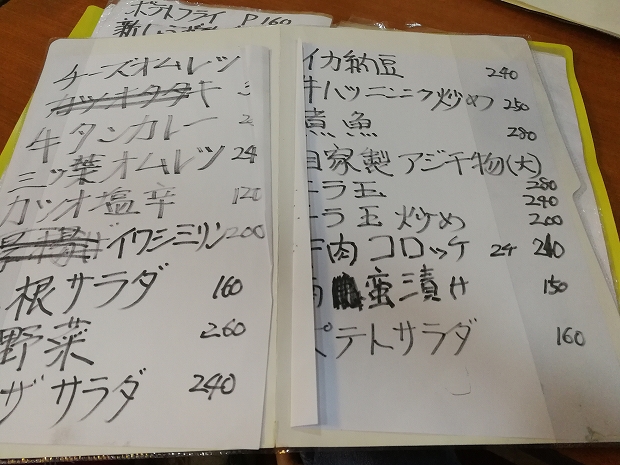 ポテトフライ P160
チーズオムレツ
カツオタタキ 3
牛タンカレー 2
三ッ葉オムレツ 24
カツオ塩辛 120
イワシミリン 200
根サラダ 160
野菜 260
ザサラダ 240
イカ納豆 240
牛ハツニンニク炒め 250
煮魚 280
自家製アジ干物(大) 280
ニラ玉 240
ニラ玉炒め 200
牛肉コロッケ 24 240
蜜漬け 150
ポテトサラダ 160